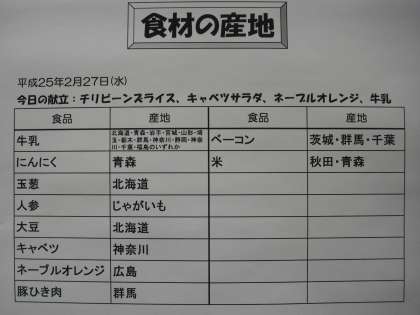 食材の産地
平成25年2月27日(水)
今日の献立：チリビーンズライス、キャベツサラダ、ネーブルオレンジ、牛乳
食品 産地 食品 産地
牛乳 北海道・青森・岩手・宮城・山形・埼玉・栃木・群馬・神奈川・静岡・神奈川・千葉・福島のいずれか ベーコン 茨城・群馬・千葉
にんにく 青森 米 秋田・青森
玉葱 北海道
人参 じゃがいも
大豆 北海道
キャベツ 神奈川
ネーブルオレンジ 広島
豚ひき肉 群馬